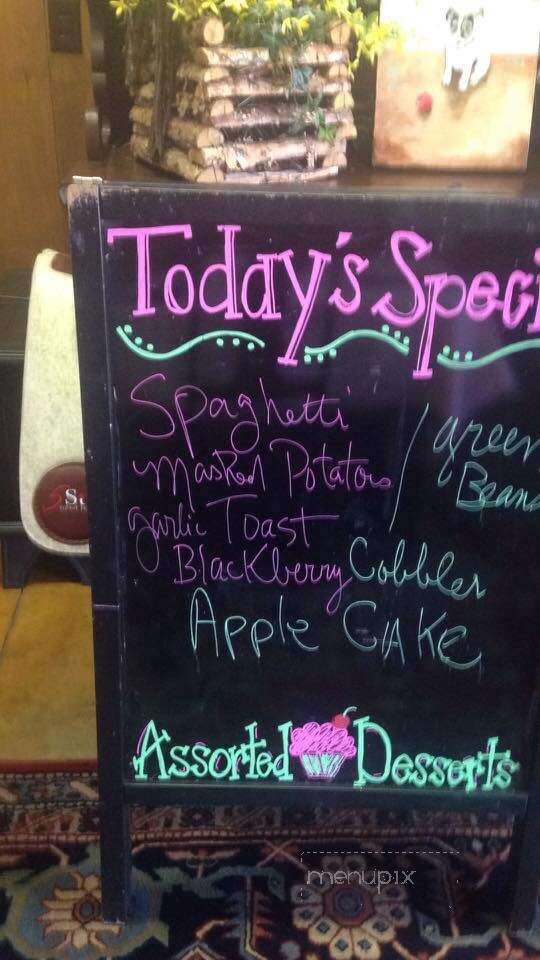 Today's Speci
Spaghetti
Mashed Potatoes / green
Beans
garlic Toast
Blackberry Cobbler
Apple Cake
Assorted Desserts
menupix